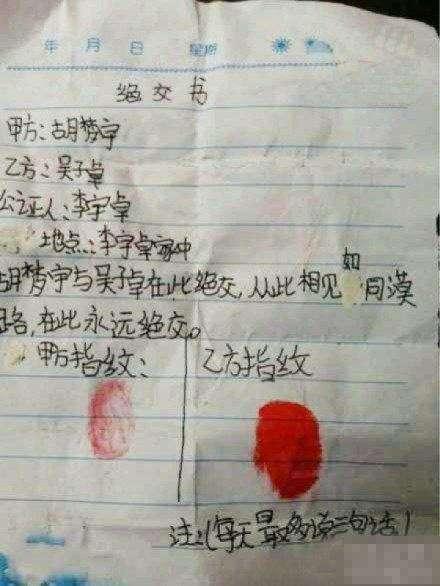 年 月 日 星期
绝交书
甲方:胡梦宇
乙方:吴子卓
公证人:李宇卓
地点:李宇卓家中
胡梦宇与吴子卓在此绝交,从此相见如同漠
路,在此永远绝交。
甲方指纹: 乙方指纹
注:(每天最多读三句话)